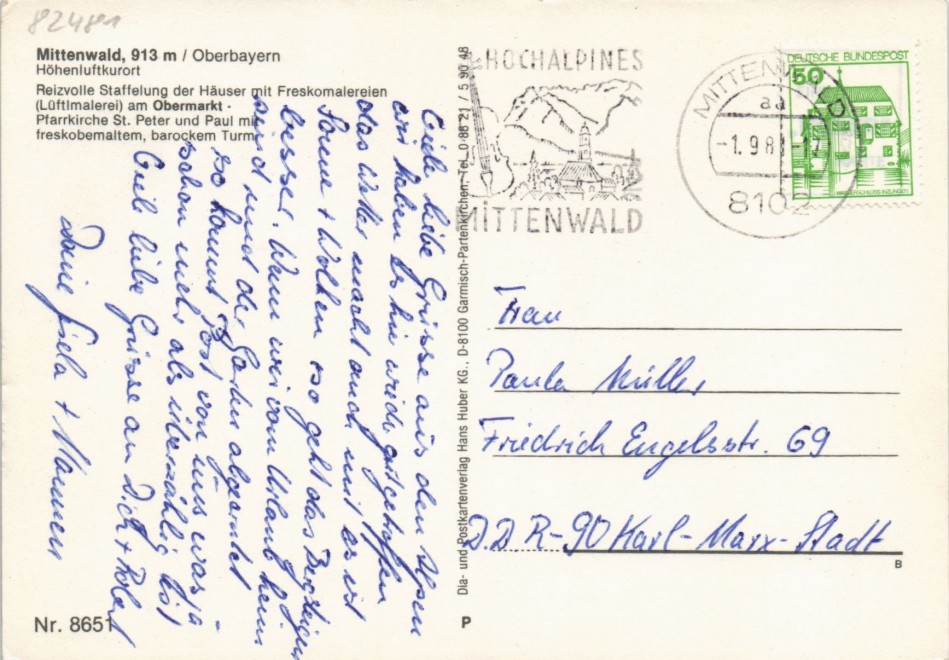 82481
Mittenwald, 913 m / Oberbayern
Höhenluftkurort
Reizvolle Staffelung der Häuser mit Freskomalereien
(Lüftlmalerei) am Obermarkt -
Pfarrkirche St. Peter und Paul mit
freskobemaltem, barockem Turm
Viele liebe Grüsse aus den Alpen
wir haben es hier wieder gut getroffen
das Wetter macht auch mit es ist
Sonne + Wolken so geht das Bersteigen
besser. Wenn wir vom Urlaub heim
sind und der Garten abgeerntet
so kommt Post von uns was ja
schon mehr als überzählig ist
Viele liebe Grüsse an Dich + Robert
Deine Gisela + Männer
Nr. 8651
Dia- und Postkartenverlag Hans Huber KG., D-8100 Garmisch-Partenkirchen, Tel. 0 88 21 / 5 90 48
P
HOCHALPINES
MITTENWALD
MITTENWALD
aa
-1.9.8
8102
DEUTSCHE BUNDESPOST
50
Frau
Paula Müller
Friedrich Engelsstr. 69
DDR-90 Karl-Marx-Stadt
B